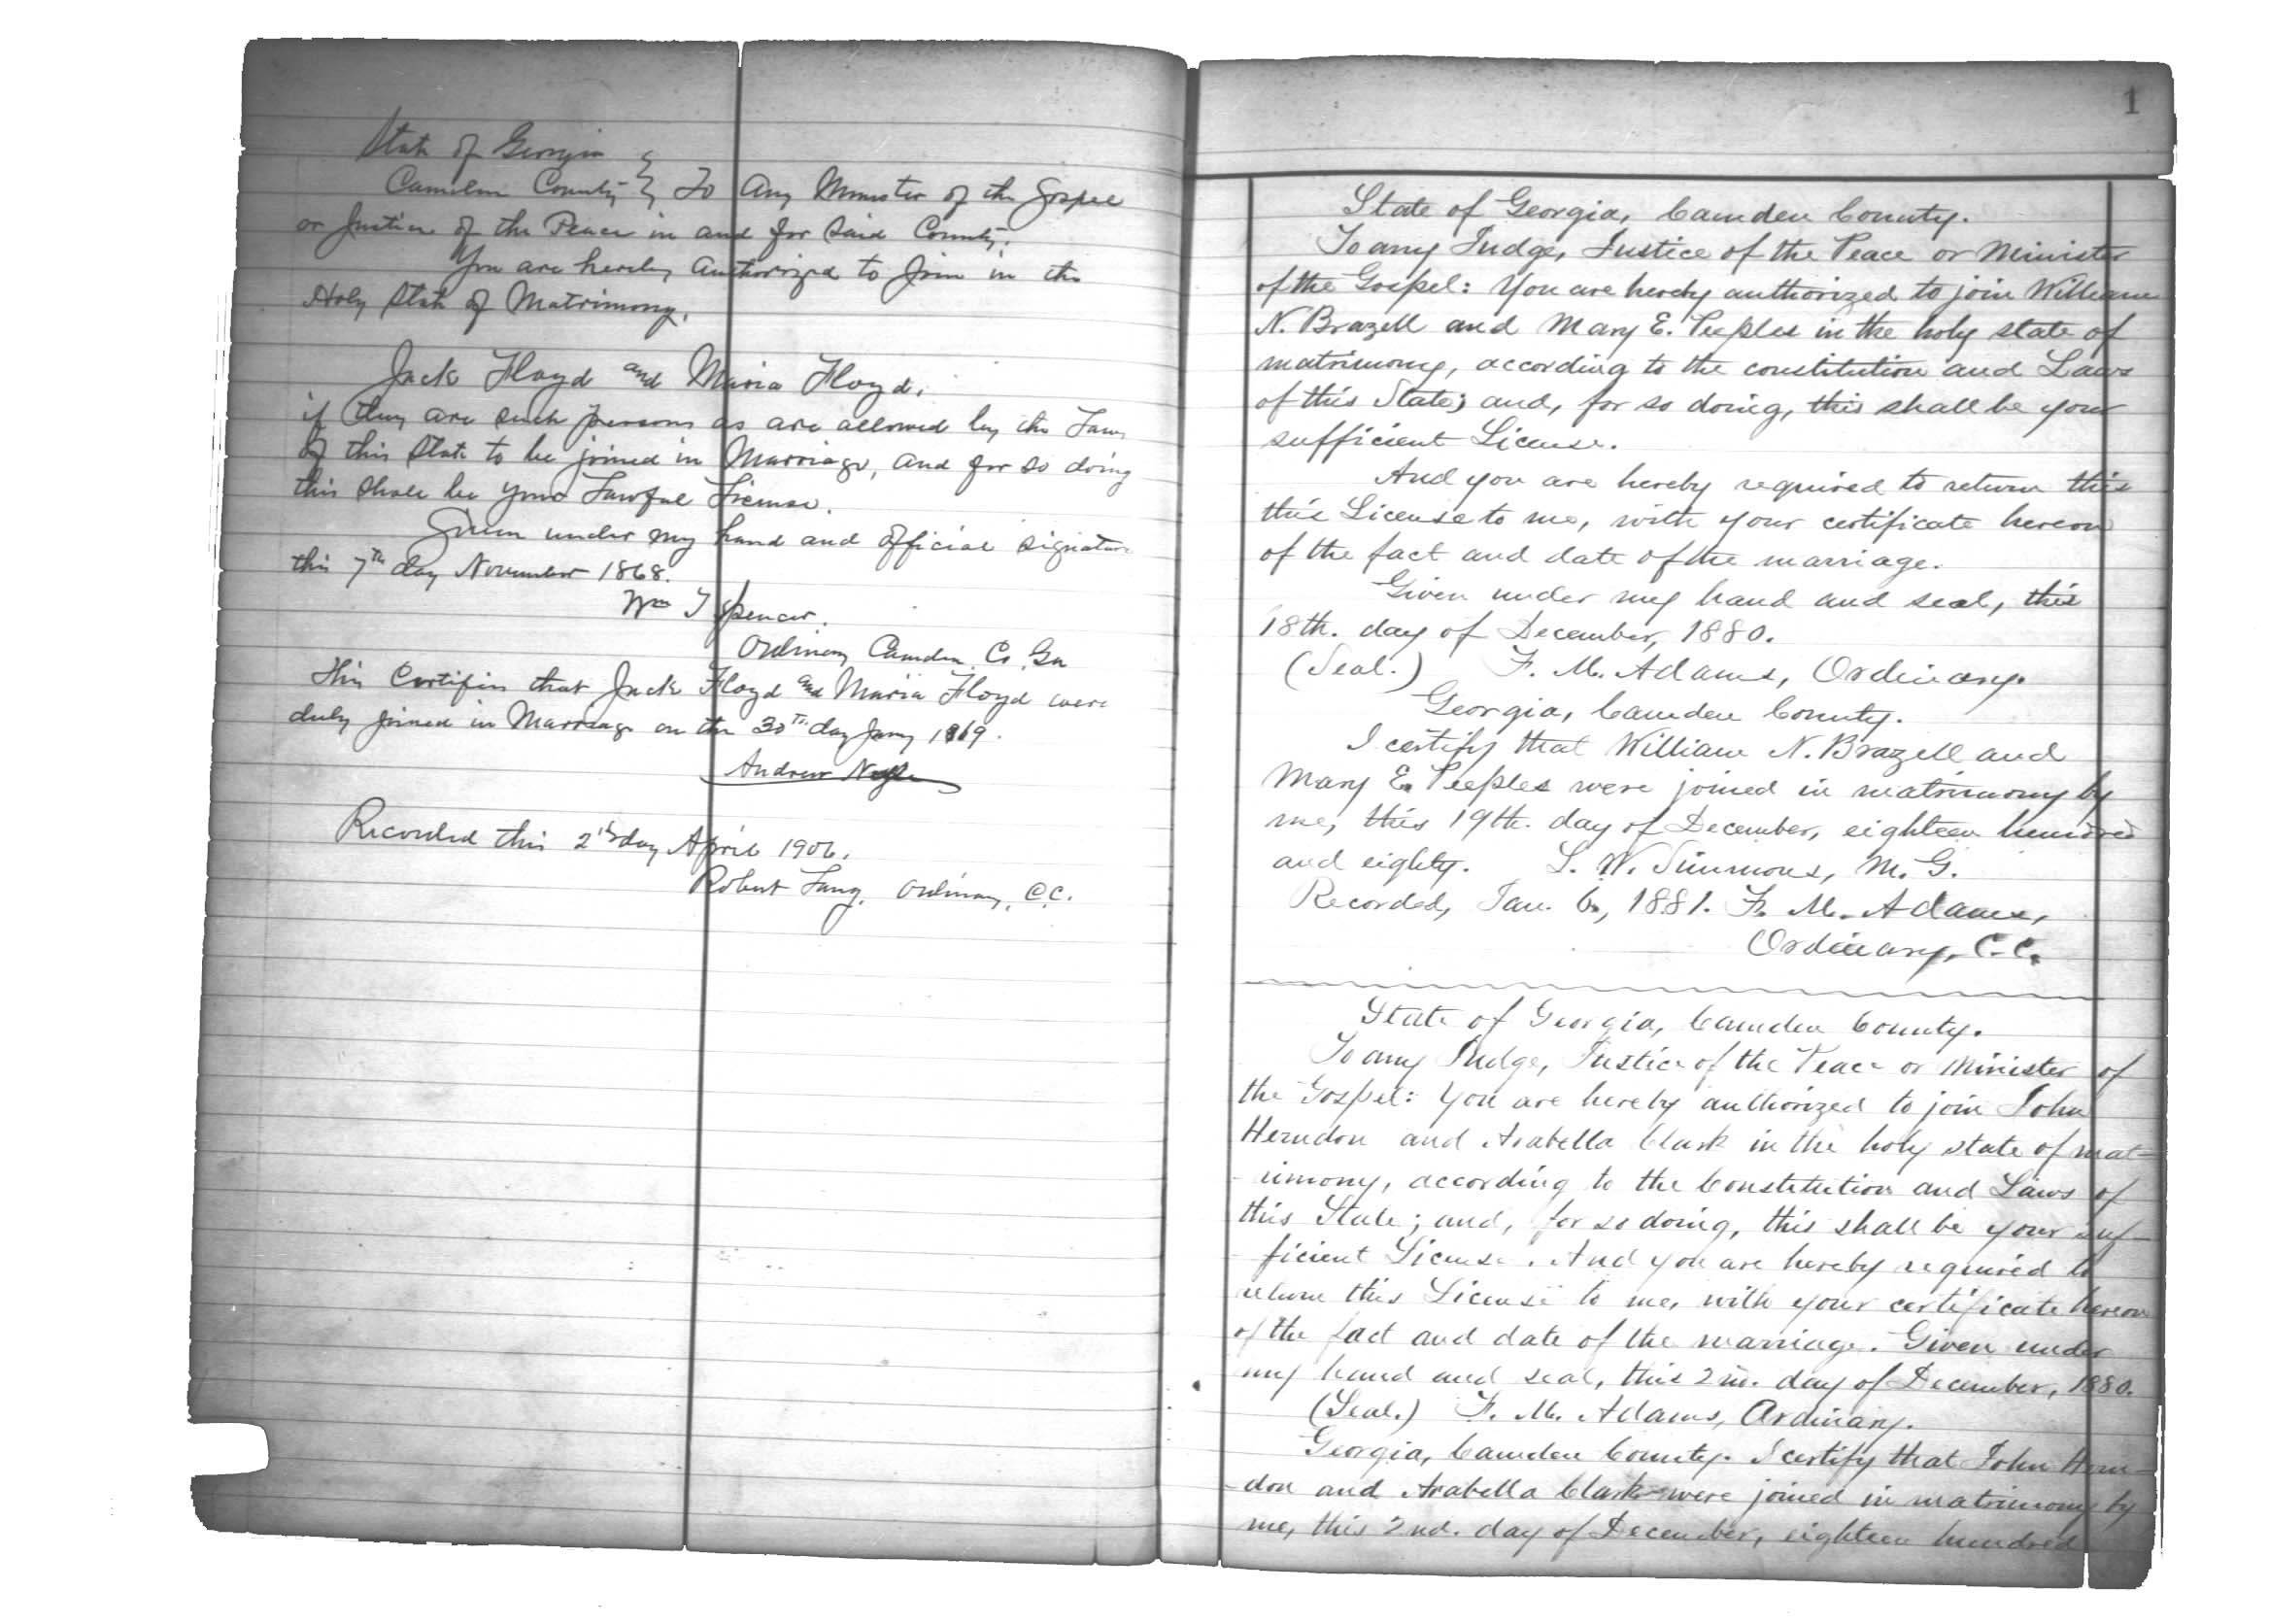 State of Georgia
Camden County } To Any Minister of the Gospel
or Justice of the Peace in and for Said County.
You are hereby Authorized to Join in the
Holy State of Matrimony,
Jack Floyd and Maria Floyd,
if they are such persons as are allowed by the Laws
of this State to be joined in Marriage, and for so doing
this shall be your Lawful License.
Given under my hand and official signature
this 7th day November 1868.
Wm T Spencer.
Ordinary Camden Co. Ga
This Certifies that Jack Floyd and Maria Floyd were
duly joined in Marriage on the 30th day Jany 1869.
Andrew
Recorded this 2d day April 1906.
Robert Lang, Ordinary, C.C.
1
State of Georgia, Camden County.
To any Judge, Justice of the Peace or Minister
of the Gospel: You are hereby authorized to join William
N. Brazell and Mary E. Peeples in the holy state of
matrimony, according to the constitution and Laws
of this State; and, for so doing, this shall be your
sufficient License.
And you are hereby required to return this
this License to me, with your certificate hereon
of the fact and date of the marriage.
Given under my hand and seal, this
18th. day of December, 1880.
(Seal.) F. M. Adams, Ordinary.
Georgia, Camden County.
I certify that William N. Brazell and
Mary E. Peeples were joined in matrimony by
me, this 19th. day of December, eighteen hundred
and eighty. L. W. Simmons, M. G.
Recorded, Jan. 6, 1881. F. M. Adams,
Ordinary, C. C.
State of Georgia, Camden County.
To any Judge, Justice of the Peace or Minister of
the Gospel: You are hereby authorized to join John
Herndon and Arabella Clark in the holy state of mat-
rimony, according to the Constitution and Laws of
this State; and, for so doing, this shall be your suf-
ficient License. And you are hereby required to
return this License to me, with your certificate hereon
of the fact and date of the marriage. Given under
my hand and seal, this 2nd. day of December, 1880.
(Seal.) F. M. Adams, Ordinary.
Georgia, Camden County. I certify that John Hern-
don and Arabella Clark were joined in matrimony by
me, this 2nd. day of December, eighteen hundred